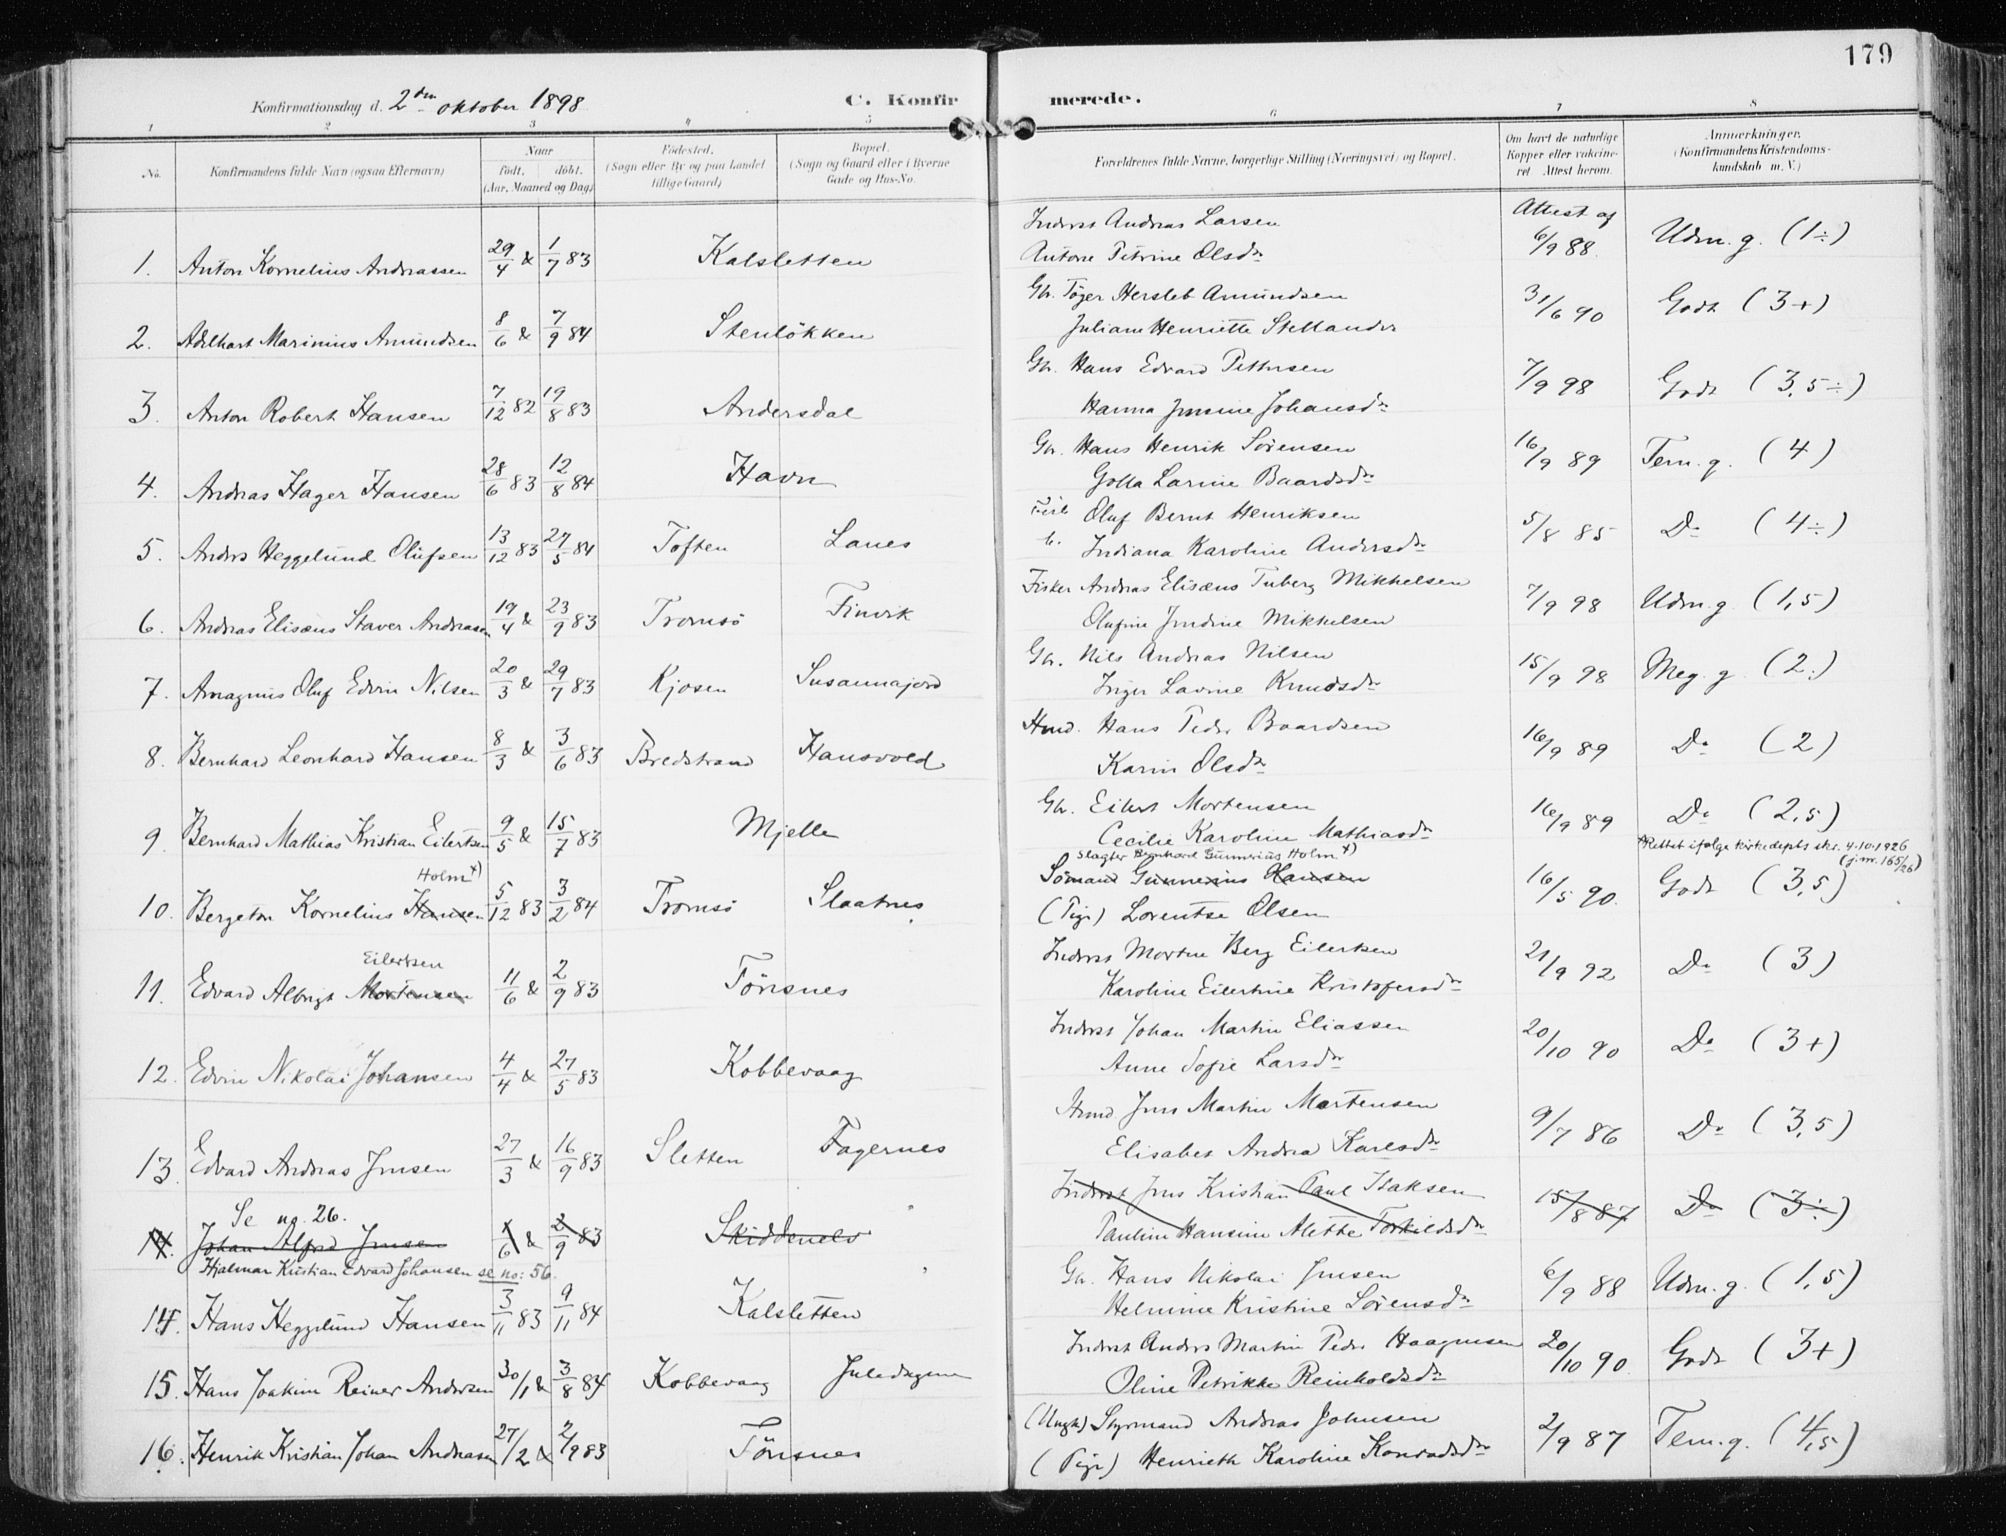 179
Konfirmationsdag d. 2den oktober 1898
C. Konfir merede.
1 2 3 4 5 6 7 8
No. Konfirmandens fulde Navn (ogsaa Efternavn) Naar født. døbt. (Aar, Maaned og Dag) Fødested. (Sogn eller By og paa Landet tillige Gaard) Bopæl. (Sogn og Gaard eller i Byerne Gade og Hus-No. Forældrenes fulde Navne, borgerlige Stilling (Næringsvei) og Bopæl. Om havt de naturlige Kopper eller vaccineret Attest herom. Anmærkninger. (Konfirmandens Kristendomskundskab m. V.)
Inderst Andreas Larsen Attest af
1. Anton Kornelius Andreassen 29/4 & 1/7 83 Kalsletten Antone Petrine Olsdr 6/9 88. Udm. g. (1÷)
Gbr. Töger Hersleb Amundsen
2. Adelhart Marinius Amundsen 8/6 & 7/9 84 Stenlökken Juliane Henriette 31/6 90 Godt (3+)
Gbr. Hans Edvard Pettersen
3. Anton Robert Hansen 7/12 82 19/8 83 Andersdal Hanna Jensine Johansdr 7/9 98 Godt (3,5÷)
Gbr. Hans Henrik Sörensen
4. Andreas Hager Hansen 28/6 83 12/8 84 Havn Golla Larine Baardsdr 16/9 89 Tem. g. (4)
Oluf Bernt Henriksen
5. Anders Heggelund Olufsen 13/12 83 27/5 84 Toften Lanes Indiana Karoline Andersdr 5/8 85 Do (4÷)
Fisker Andreas Elisæus Tuberg Mikkelsen
6. Andreas Elisæus Staver Andreasen 19/4 & 23/9 83 Tromsö Finvik Olufine Jendine Mikkelsen 7/9 98 Udm. g. (1,5)
Gbr. Nils Andreas Nilsen
7. Amagnus Oluf Edvin Nilsen 20/3 & 29/7 83 Kjosen Susannajord Inger Lavine Knudsdr 15/9 98 Meg. g. (2÷)
Hmd. Hans Peder Baardsen
8. Bernhard Leonhard Hansen 8/3 & 3/6 83 Bredstrand Hansvold Karin Olsdr 16/9 89 Do (2)
Gbr. Eilert Mortensen
9. Bernhard Mathias Kristian Eilertsen 9/5 & 15/7 83 Mjelle Cecilie Karoline Mathiasdr 16/9 89 Do (2,5)
Slagter Bernhard Gunnerius Holm +) +) Rettet ifølge kirkedepts skr. 4.10.1926 (j.nr. 165/26)
Holm +) Sömand Gunnerius Hansen
10. Bergeton Kornelius Hansen 5/12 83 3/2 84 Tromsö Slaatnes (Pige) Lorentse Olsen 16/5 90. Godt (3,5)
Eilertsen Inderst Morten Berg Eilertsen
11. Edvard Albrigt Mortensen 11/6 & 2/9 83 Tönsnes Karoline Eilertine Kristofersdr 21/9 92 Do (3)
Inderst Johan Martin Eliassen
12. Edvin Nikolai Johansen 4/4 & 27/5 83 Kobbevaag Anne Sofie Larsdr 20/10 90 Do (3+)
Hmd. Jens Martin Mortensen
13. Edvard Andreas Jensen 27/3 & 16/9 83 Sletten Fagernes Elisabet Andrea Karlsdr 9/7 86 Do (3,5)
Se no. 26. Inderst Jens Kristian Paul Isaksen
14. Johan Alfred Jensen 1/6 & 2/9 83 Skiddenelv Pauline Hansine Alette Torkildsdr 15/8 87 Do (3÷)
Hjalmar Kristian Edvard Johansen se no: 56.
Gbr. Hans Nikolai Jensen
14. Hans Heggelund Hansen 3/11 83 9/11 84 Kalsletten Helmine Kristine Sörensdr 6/9 88 Udm. g. (1,5)
Inderst Anders Martin Peder Haagensen
15. Hans Joakim Reiner Andersen 30/1 & 3/8 84 Kobbevaag Oline Petrikke Reinholdsdr 20/10 90. Godt (3+)
(Ungk) Styrmand Andreas Johnsen
16. Henrik Kristian Johan Andreasen 27/2 & 2/9 83 Tönsnes (Pige) Henriette Karoline Konradsdr 2/9 87 Tem. g. (4,5)